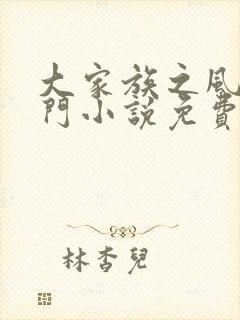 大家族之風
門小說免費
林杏兒